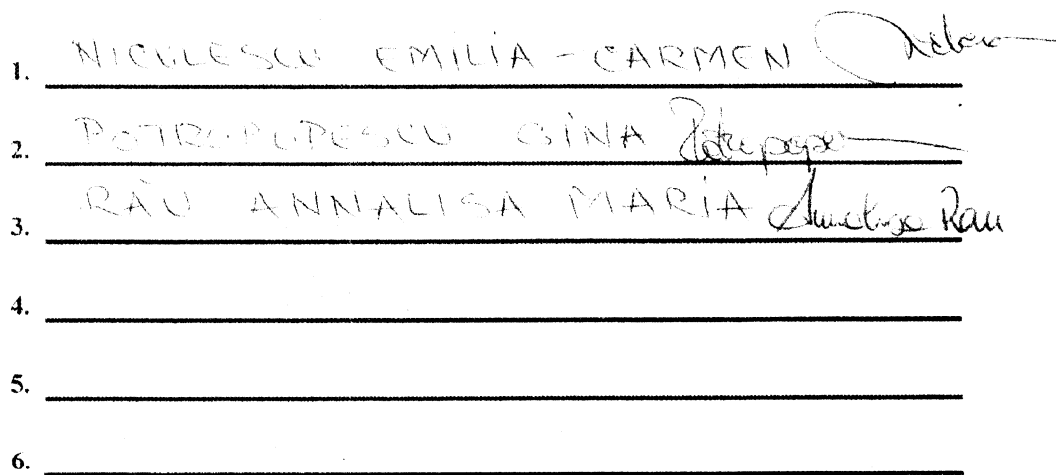 1. NICULESCU EMILIA-CARMEN
2. POTROPOPESCU GINA
3. RĂU ANNALISA MARIA Annalisa Rau
4.
5.
6.